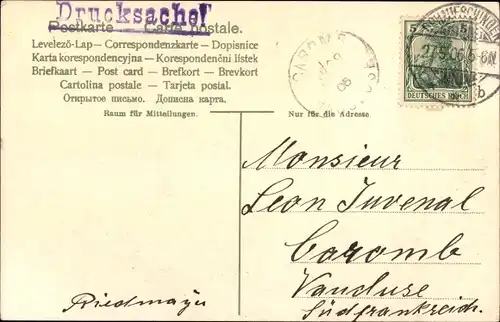 Drucksache!
Postkarte — Carte postale.
Levelező-Lap — Correspondenzkarte — Dopisnice
Karta korespondencyjna — Korespondenční lístek
Briefkaart — Post card — Brefkort — Brevkort
Cartolina postale — Tarjeta postal.
Открытое письмо. Дописна карта.
Raum für Mitteilungen.
Nur für die Adresse.
CAROMB
5 5
DEUTSCHES REICH
b
Monsieur
Leon Juvenal
Caromb
Vaucluse
Südfrankreich.
Riedmayer